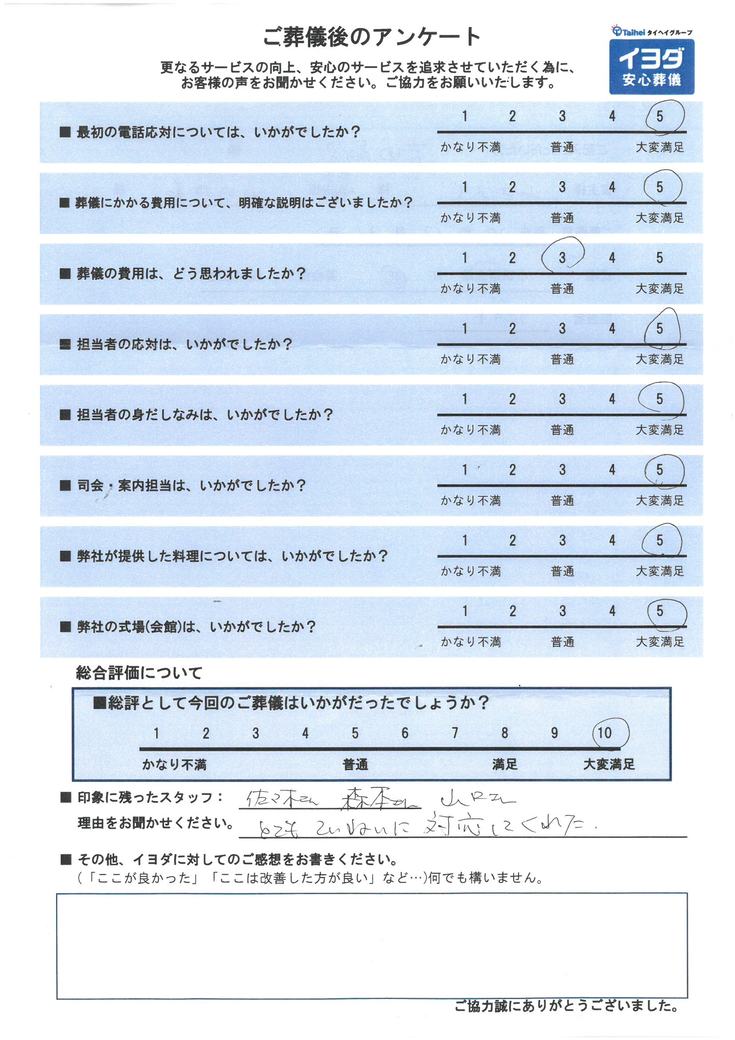 ご葬儀後のアンケート
Taihei タイヘイグループ
イヨダ
安心葬儀
更なるサービスの向上、安心のサービスを追求させていただく為に、
お客様の声をお聞かせください。ご協力をお願いいたします。
■ 最初の電話応対については、いかがでしたか？
1 2 3 4 5
かなり不満 普通 大変満足
■ 葬儀にかかる費用について、明確な説明はございましたか？
1 2 3 4 5
かなり不満 普通 大変満足
■ 葬儀の費用は、どう思われましたか？
1 2 3 4 5
かなり不満 普通 大変満足
■ 担当者の応対は、いかがでしたか？
1 2 3 4 5
かなり不満 普通 大変満足
■ 担当者の身だしなみは、いかがでしたか？
1 2 3 4 5
かなり不満 普通 大変満足
■ 司会・案内担当は、いかがでしたか？
1 2 3 4 5
かなり不満 普通 大変満足
■ 弊社が提供した料理については、いかがでしたか？
1 2 3 4 5
かなり不満 普通 大変満足
■ 弊社の式場(会館)は、いかがでしたか？
1 2 3 4 5
かなり不満 普通 大変満足
総合評価について
■総評として今回のご葬儀はいかがだったでしょうか？
1 2 3 4 5 6 7 8 9 10
かなり不満 普通 満足 大変満足
■ 印象に残ったスタッフ： 佐々木さん 森本さん 山口さん
理由をお聞かせください。 とても ていねいに 対応してくれた.
■ その他、イヨダに対してのご感想をお書きください。
(「ここが良かった」「ここは改善した方が良い」など…)何でも構いません。
ご協力誠にありがとうございました。